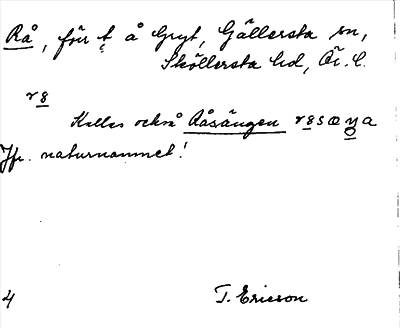 Rå, förr t å Gryt, Gällersta sn,
Sköllersta hd, Ör. l.
r8
Kallas också Råsängen r8sæŋa
Jfr. naturnamnet!
4 T. Ericson